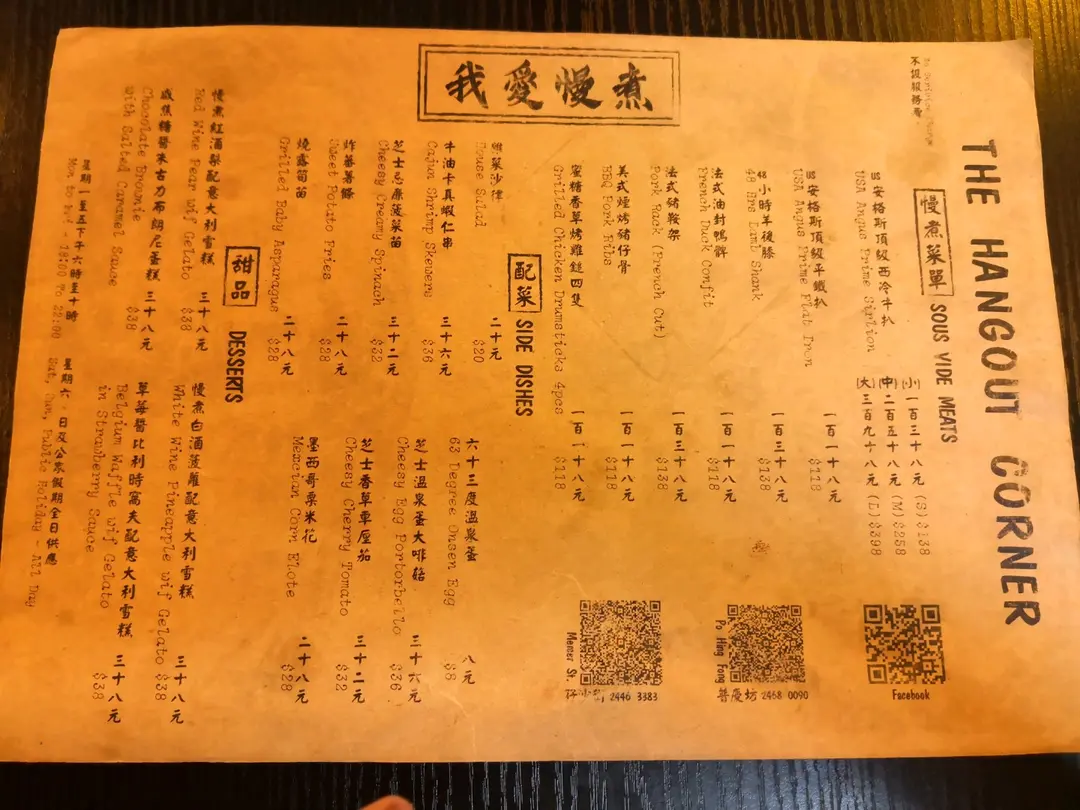 THE HANGOUT CORNER
我愛慢煮
不設服務費。
慢煮菜單 SOUS VIDE MEATS
US安格斯頂級西冷牛扒 (小) 一百三十八元 (S) $138
USA Angus Prime Sirlion (中) 二百五十八元 (M) $258
(大) 三百九十八元 (L) $398
US安格斯頂級平鐵扒 一百一十八元
USA Angus Prime Flat Iron $118
48小時羊後膝 一百三十八元
48 Hrs Lamb Shank $138
法式油封鴨髀 一百一十八元
French Duck Confit $118
法式豬鞍架 一百三十八元
Pork Rack (French Cut) $138
美式煙烤豬仔骨 一百一十八元
BBQ Pork Ribs $118
蜜糖香草烤雞鎚四隻 一百一十八元
Grilled Chicken Drumsticks 4pcs $118
配菜 SIDE DISHES
雜菜沙律 二十元
House Salad $20
牛油卡真蝦仁串 三十六元
Cajun Shrimp Skewers $36
芝士忌廉菠菜苗 三十二元
Cheesy Creamy Spinach $32
炸蕃薯條 二十八元
Sweet Potato Fries $28
燒露筍苗 二十八元
Grilled Baby Asparagus $28
六十三度溫泉蛋 八元
63 Degree Onsen Egg $8
芝士溫泉蛋大啡菇 三十六元
Cheesy Egg Portorbello $36
芝士香草車厘茄 三十二元
Cheesy Cherry Tomato $32
墨西哥粟米花 二十八元
Mexcian Corn Elote $28
甜品 DESSERTS
慢煮紅酒梨配意大利雪糕 三十八元
Red Wine Pear wif Gelato $38
咸焦糖醬朱古力布朗尼蛋糕 三十八元
Chocolate Brownie $38
with Salted Caramel Sauce
慢煮白酒菠蘿配意大利雪糕 三十八元
White Wine Pineapple wif Gelato $38
草莓醬比利時窩夫配意大利雪糕 三十八元
Belgium Waffle wif Gelato $38
in Strawberry Sauce
星期一至五下午六時至十時
Mon to Fri - 18:00 To 22:00
星期六、日及公眾假期全日供應
Sat, Sun, Public Holiday - All Day
Facebook
Po Hing Fong
普慶坊 2468 0090
Memer St.
2446 3383